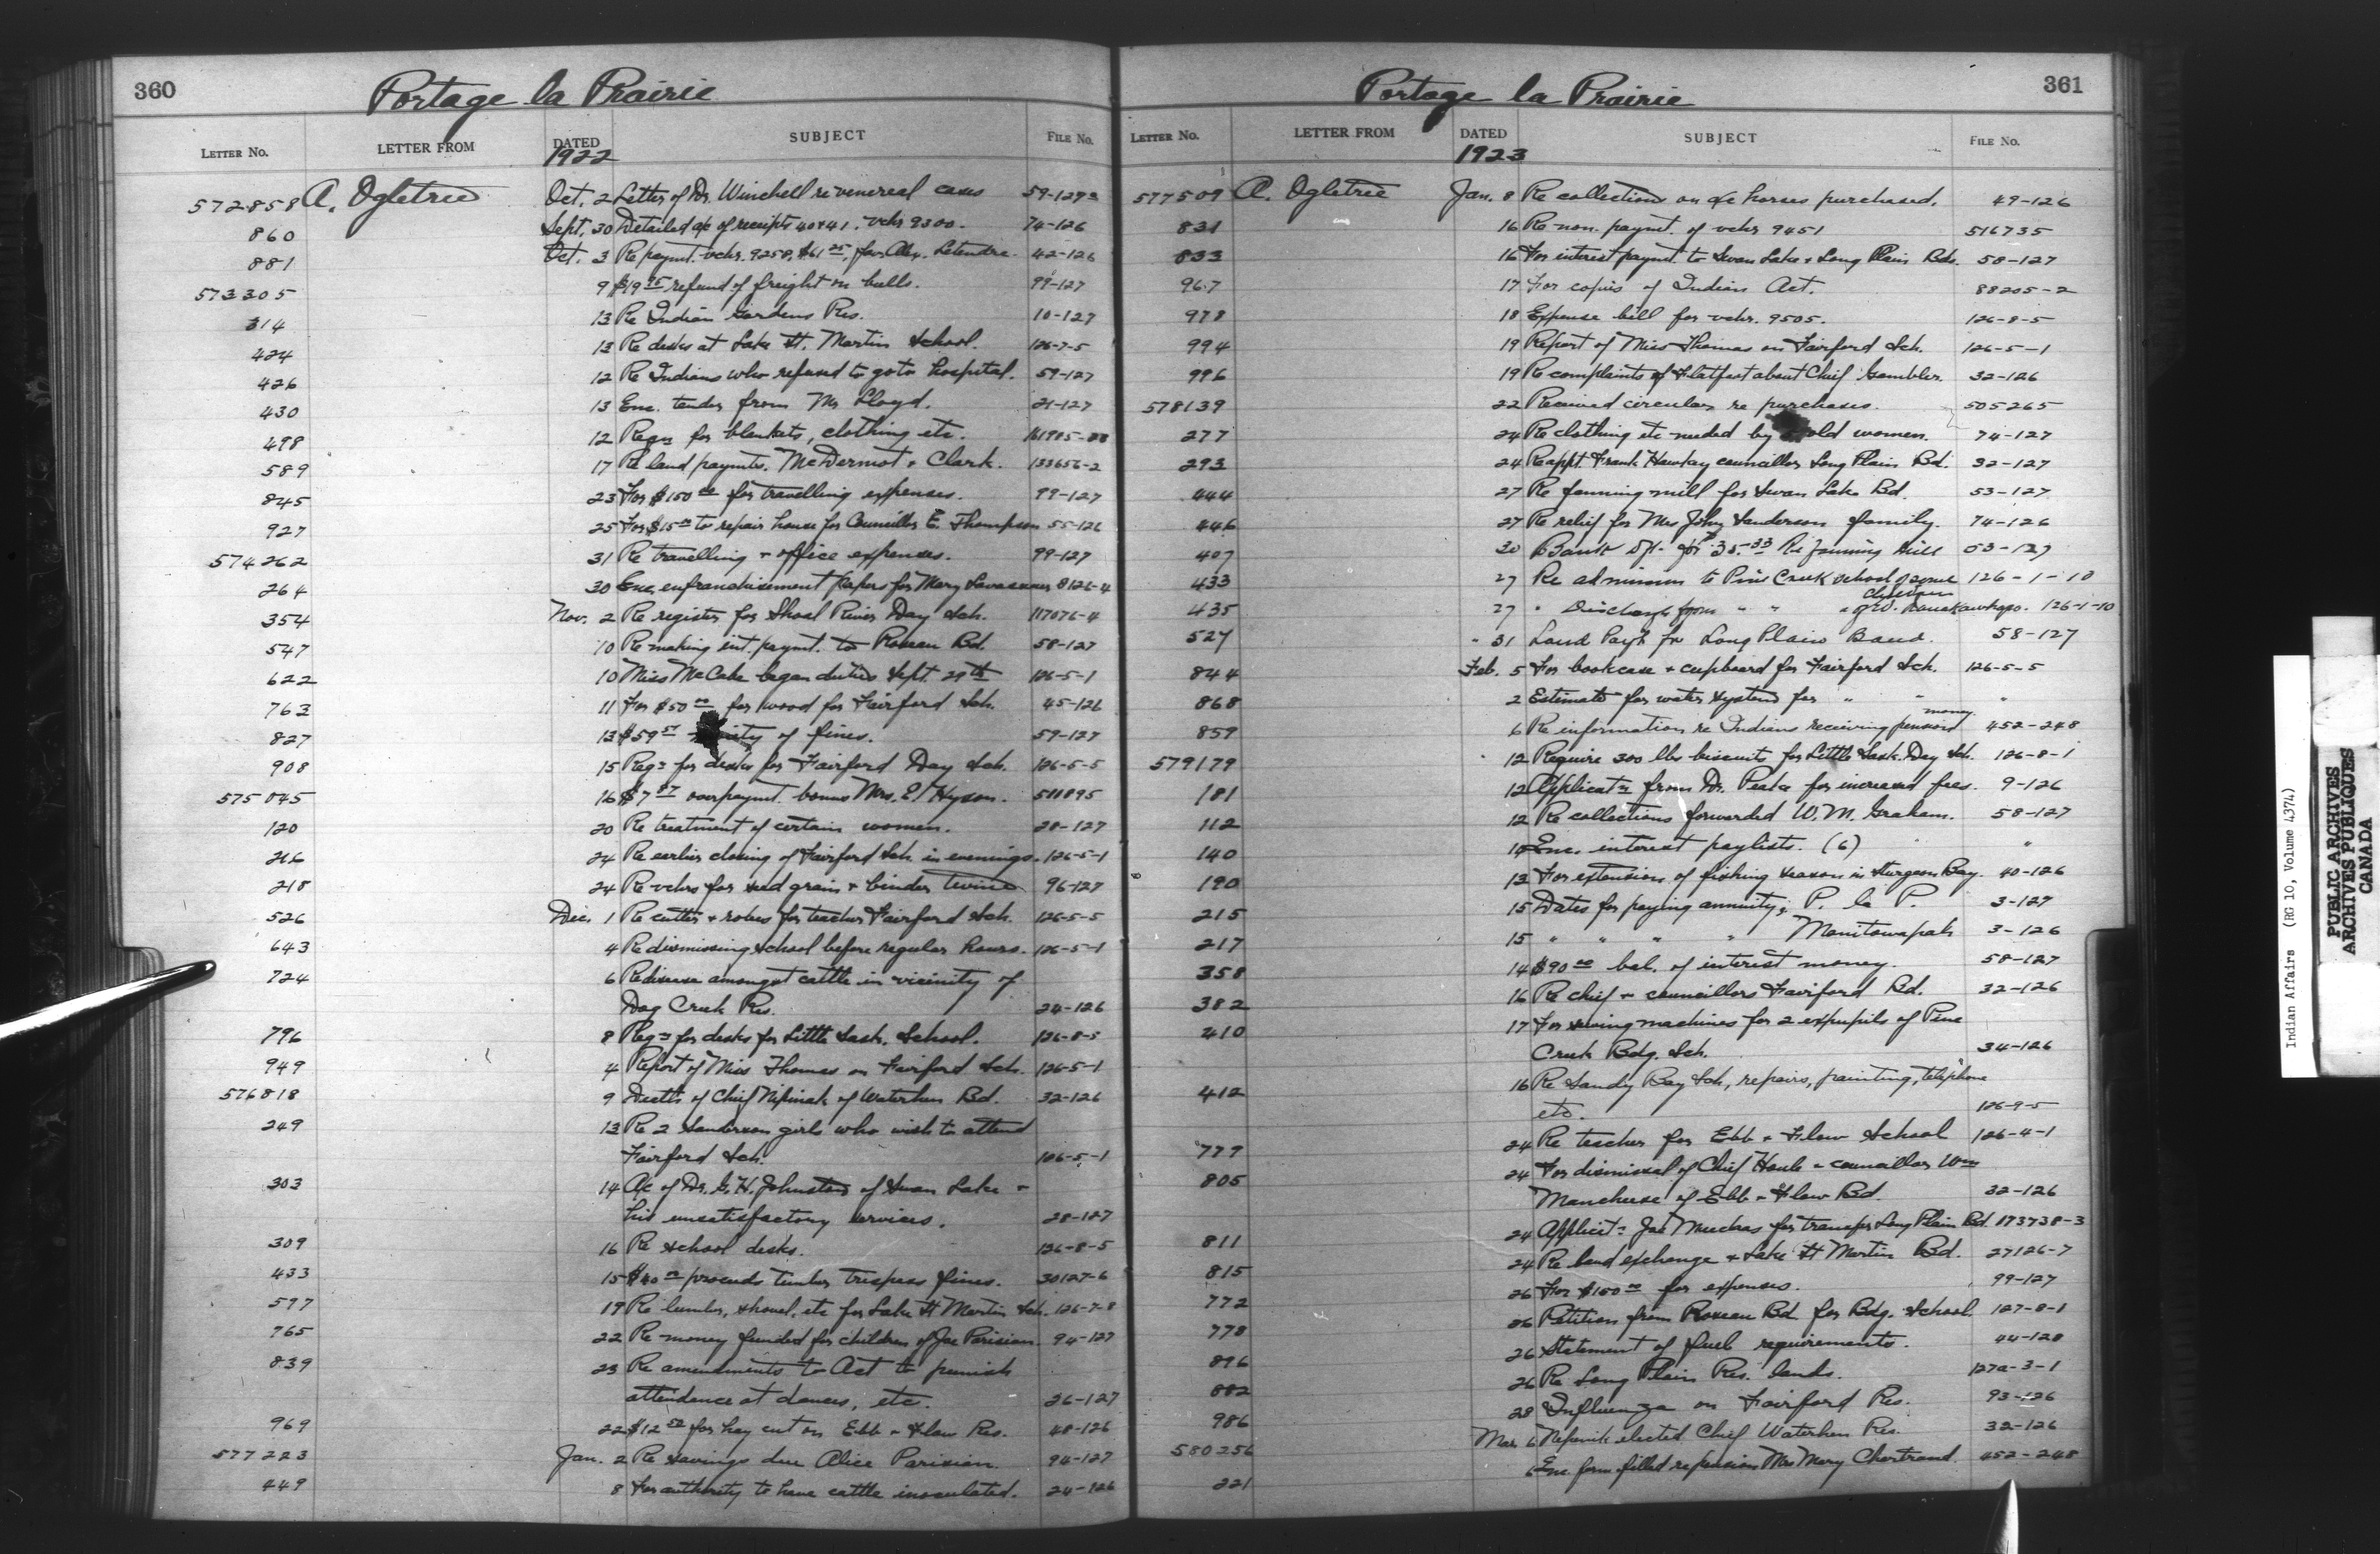 360
Portage la Prairie
LETTER No. LETTER FROM DATED SUBJECT FILE No.
1922
572858 A. Ogletree Oct. 2 Letter of Dr. Winchell re venereal cases 59-127
860 Sept. 30 Detailed a/c of receipts 40 & 41. vchr 9300. 74-126
881 Oct. 3 Re paymt. vchr. 9258, $61.25, fav. Alex. Letendre. 42-126
573305 9 $19 refund of freight on bulls. 99-127
314 13 Re Indian Gardens Res. 10-127
424 13 Re desks at Lake St. Martin School. 126-7-5
426 12 Re Indians who refused to go to hospital. 59-127
430 13 Enc. tender from Mr Lloyd. 21-127
498 12 Reqn for blankets, clothing etc.
589 17 Re land paymts. McDermot & Clark. 133656-2
845 23 For $150.00 for travelling expenses. 99-127
927 25 For $15.00 to repair house for Councillor E. Thompson 55-126
574262 31 Re travelling & office expenses. 99-127
264 30 Enc. enfranchisement papers for Mary 8126-4
354 Nov. 2 Re register for Shoal River Day Sch. 117076-4
547 10 Re making int. paymt. to Roseau Bd. 58-127
622 10 Miss McCabe began duties Sept 29th 126-5-1
763 11 For $50.00 for wood for Fairford Sch. 45-126
827 13 $59 of fines. 59-127
908 15 Reqn for desks for Fairford Day Sch. 126-5-5
575045 16 $7 overpaymt. bonus Mrs. E. Hyson. 511895
120 20 Re treatment of certain women. 28-127
216 24 Re earlier closing of Fairford Sch. in evenings. 126-5-1
218 24 Re vchrs for seed grain & binder twine 96-127
526 Dec. 1 Re cutter & robes for teacher Fairford Sch. 126-5-5
643 4 Re dismissing school before regular hours. 126-5-1
724 6 Re disease amongst cattle in vicinity of
Dog Creek Res. 24-126
796 8 Reqn for desks for Little Sask. School. 126-8-5
949 4 Report of Miss Thomas on Fairford Sch. 126-5-1
576818 9 Death of Chief Nepinak of Waterhen Bd. 32-126
249 13 Re 2 Sanderson girls who wish to attend
Fairford Sch. 126-5-1
303 14 A/c of Dr. G. H. Johnston of Swan Lake &
his unsatisfactory services. 28-127
309 16 Re school desks. 126-8-5
433 15 $40.00 proceeds timber trespass fines. 30127-6
597 19 Re lumber, shovel, etc for Lake St Martin Sch. 126-7-8
765 22 Re money funded for children of Joe Parisian. 94-127
839 23 Re amendments to Act to punish
attendance at dances, etc. 26-127
969 22 $12.50 for hay cut on Ebb & Flow Res. 48-126
577223 Jan. 2 Re savings due Alice Parisian. 94-127
449 8 For authority to have cattle inoculated. 24-126
361
Portage la Prairie
LETTER No. LETTER FROM DATED SUBJECT FILE No.
1923
577509 A. Ogletree Jan. 8 Re collections on a/c horses purchased. 49-126
831 16 Re non. paymt. of vchr 9451 516735
833 16 For interest paymt. to Swan Lake & Long Plain Bds. 58-127
967 17 For copies of Indian Act. 88205-2
978 18 Expense bill for vchr. 9505. 126-8-5
994 19 Report of Miss Thomas on Fairford Sch. 126-5-1
996 19 Re complaints of Flatfoot about Chief Gambler. 32-126
578139 22 Received circular re purchases. 505265
277 24 Re clothing etc needed by old women. 74-127
293 24 Re appt. Frank Hawkay councillor Long Plain Bd. 32-127
444 27 Re fanning mill for Swan Lake Bd. 53-127
446 27 Re relief for Mrs John Sanderson & family. 74-126
407 30 Bank Dft. for $35.33 Re fanning Mill 53-127
433 27 Re admission to Pine Creek school of some children 126-1-10
435 27 " Discharge from " " " of 126-1-10
527 " 31 Land Payt fr Long Plain Band. 58-127
844 Feb. 5 For bookcase & cupboard for Fairford Sch. 126-5-5
868 2 Estimate for water system for " " "
859 6 Re information re Indians receiving pension money 452-248
579179 12 Require 300 lbs biscuits for Little Sask. Day Sch. 126-8-1
181 12 Applicatn from Dr. for increased fees. 9-126
112 12 Re collections forwarded W. M. Graham. 58-127
140 Enc. interest paylists. (6) "
190 13 For extension of fishing season in Sturgeon Bay. 40-126
215 15 Dates for paying annuity; P. la P. 3-127
217 15 " " " " Manitowapah 3-126
358 14 $90.00 bal. of interest money. 58-127
382 16 Re chief & councillors Fairford Bd. 32-126
410 17 For sewing machines for 2 expupils of Pine
Creek Bdg. Sch. 34-126
412 16 Re Sandy Bay Sch., repairs, painting, telephone
etc. 126-9-5
779 24 Re teacher for Ebb & Flow School 126-4-1
805 24 For dismissal of Chief Houle & councillor Wm
Mancheese of Ebb & Flow Bd. 32-126
811 24 Applicatn Joe for transfer Long Plain Bd. 173738-3
815 24 Re land exchange & Lake St Martin Bd. 27126-7
772 26 For $150.00 for expenses. 99-127
778 26 Petition from Roseau Bd for Bdg. School. 127-8-1
896 26 Statement of fuel requirements. 44-128
882 26 Re Long Plain Res. lands. 127a-3-1
986 28 Influenza on Fairford Res. 93-126
580256 Mar. 6 Nepinik elected Chief Waterhen Res. 32-126
221 6 Enc. form filled re pension Mrs Mary Chartrand. 452-248
Indian Affairs (RG 10, Volume 4374)
PUBLIC ARCHIVES
ARCHIVES PUBLIQUES
CANADA